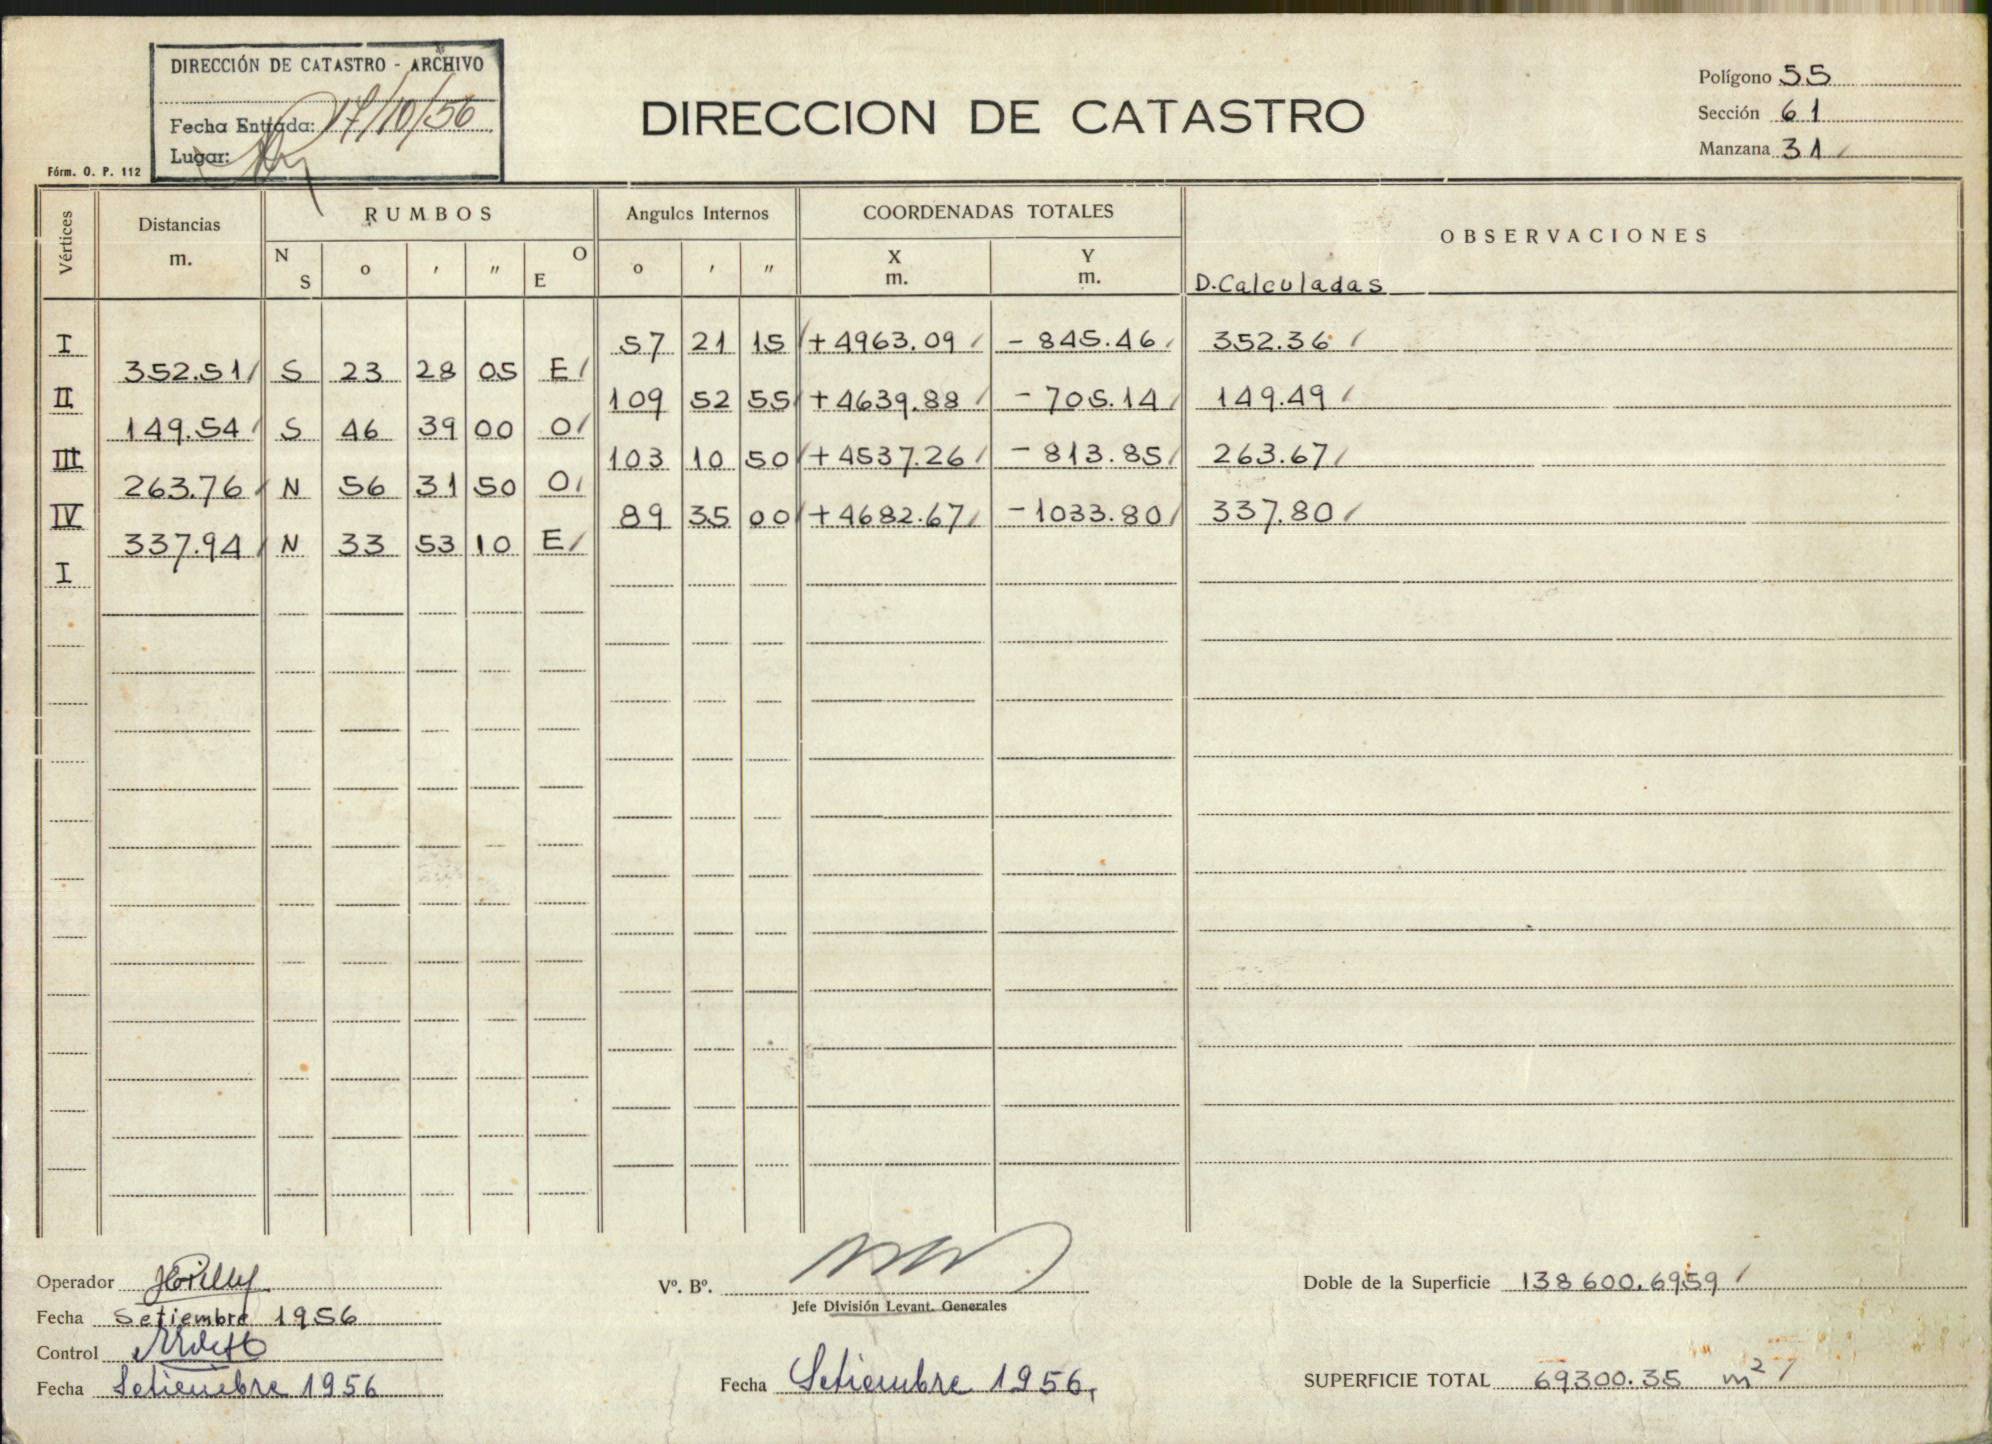 DIRECCIÓN DE CATASTRO - ARCHIVO
Fecha Entrada: 17/10/56
Lugar:
Fórm. O. P. 112
DIRECCION DE CATASTRO
Polígono 55
Sección 61
Manzana 31
Vértices Distancias m. RUMBOS Angulos Internos COORDENADAS TOTALES OBSERVACIONES
N S o ' " O E o ' " X m. Y m. D. Calculadas
I 57 21 15 +4963.09 -845.46 352.36
352.51 S 23 28 05 E
II 109 52 55 +4639.88 -705.14 149.49
149.54 S 46 39 00 O
III 103 10 50 +4537.26 -813.85 263.67
263.76 N 56 31 50 O
IV 89 35 00 +4682.67 -1033.80 337.80
337.94 N 33 53 10 E
I
Operador
Fecha Setiembre 1956
Control
Fecha Setiembre 1956
Vº. Bº.
Jefe División Levant. Generales
Fecha Setiembre 1956,
Doble de la Superficie 138600.6959
SUPERFICIE TOTAL 69300.35 m2